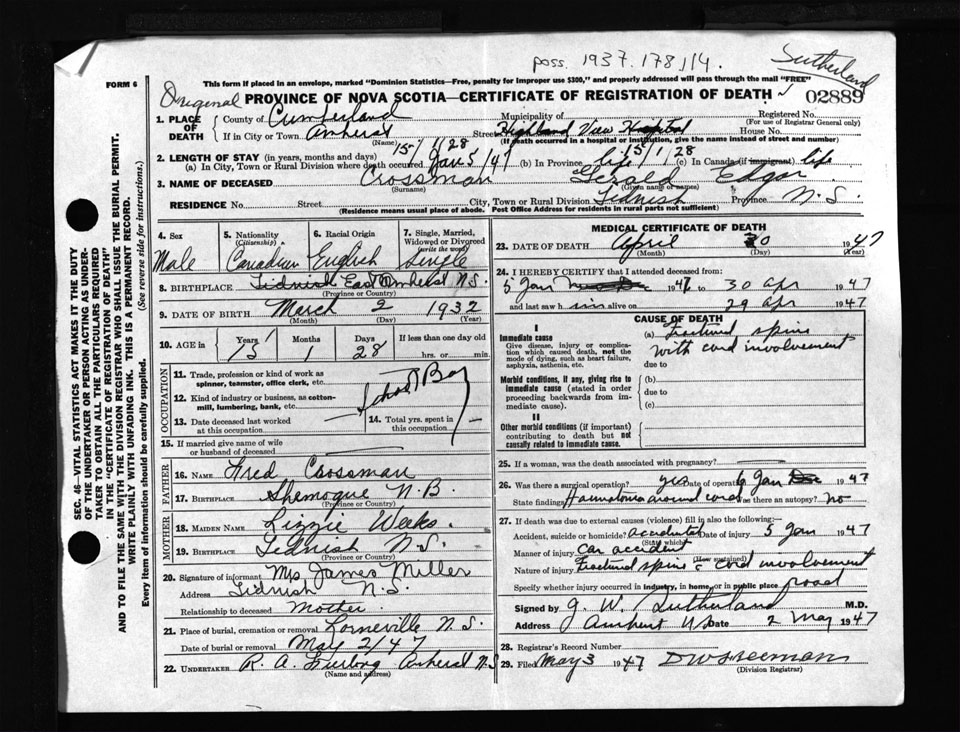 poss. 1937.178114.
Sutherland
FORM 6
This form if placed in an envelope, marked "Dominion Statistics—Free, penalty for improper use $300," and properly addressed will pass through the mail "FREE"
Original PROVINCE OF NOVA SCOTIA—CERTIFICATE OF REGISTRATION OF DEATH 02889
1. PLACE OF DEATH County of Cumberland Municipality of Registered No.
(For use of Registrar General only)
If in City or Town Amherst Street Highland View Hospital House No.
(Name) (If death occurred in a hospital or institution, give its name instead of street and number)
15/1/28 15/1/28
2. LENGTH OF STAY (in years, months and days)
(a) In City, Town or Rural Division where death occurred Jan 5/47 (b) In Province life (c) In Canada (if immigrant) life
3. NAME OF DECEASED Crossman Gerald Edgar
(Surname) (Given name or names)
RESIDENCE No. Street City, Town or Rural Division Tidnish Province N.S.
(Residence means usual place of abode. Post Office Address for residents in rural parts not sufficient)
4. Sex Male
5. Nationality (Citizenship) Canadian
6. Racial Origin English
7. Single, Married, Widowed or Divorced (write the word) Single
8. BIRTHPLACE Tidnish East Amherst N.S.
(Province or Country)
9. DATE OF BIRTH March 2 1932
(Month) (Day) (Year)
10. AGE in Years 15 Months 1 Days 28 If less than one day old hrs. or min.
OCCUPATION
11. Trade, profession or kind of work as spinner, teamster, office clerk, etc.
School Boy
12. Kind of industry or business, as cotton-mill, lumbering, bank, etc.
13. Date deceased last worked at this occupation
14. Total yrs. spent in this occupation
15. If married give name of wife or husband of deceased
FATHER
16. NAME Fred Crossman
17. BIRTHPLACE Shemogue N.B.
(Province or Country)
MOTHER
18. MAIDEN NAME Lizzie Weeks.
19. BIRTHPLACE Tidnish N.S.
(Province or Country)
20. Signature of informant Mrs James Miller
Address Tidnish N.S.
Relationship to deceased Mother.
21. Place of burial, cremation or removal Lorneville N.S.
Date of burial or removal May 2/47
22. UNDERTAKER R. A. Furlong Amherst N.S
(Name and address)
MEDICAL CERTIFICATE OF DEATH
23. DATE OF DEATH April 30 1947
(Month) (Day) (Year)
24. I HEREBY CERTIFY that I attended deceased from:
5 Jan 1947 to 30 Apr 1947
and last saw him alive on 29 Apr 1947
CAUSE OF DEATH
I
Immediate cause
Give disease, injury or complication which caused death, not the mode of dying, such as heart failure, asphyxia, asthenia, etc.
(a) Fractured spine
with cord involvement
due to
Morbid conditions, if any, giving rise to immediate cause (stated in order proceeding backwards from immediate cause).
(b)
due to
(c)
II
Other morbid conditions (if important) contributing to death but not causally related to immediate cause.
25. If a woman, was the death associated with pregnancy?
26. Was there a surgical operation? yes Date of operation 6 Jan 1947
State findings Haematoma around cord Was there an autopsy? No
27. If death was due to external causes (violence) fill in also the following:—
Accident, suicide or homicide? Accidental Date of injury 5 Jan 1947
(State which)
Manner of injury Car accident
(How sustained)
Nature of injury Fractured spine c cord involvement
Specify whether injury occurred in industry, in home, or in public place road
Signed by J. W. Sutherland M.D.
Address Amherst NS Date 2 May 1947
28. Registrar's Record Number
29. Filed May 3 1947
(Division Registrar)
SEC. 46—VITAL STATISTICS ACT MAKES IT THE DUTY OF THE UNDERTAKER OR PERSON ACTING AS UNDERTAKER TO OBTAIN ALL THE PARTICULARS REQUIRED IN THE "CERTIFICATE OF REGISTRATION OF DEATH" AND TO FILE THE SAME WITH THE DIVISION REGISTRAR WHO SHALL ISSUE THE BURIAL PERMIT.
WRITE PLAINLY WITH UNFADING INK. THIS IS A PERMANENT RECORD.
Every item of information should be carefully supplied. (See reverse side for instructions.)